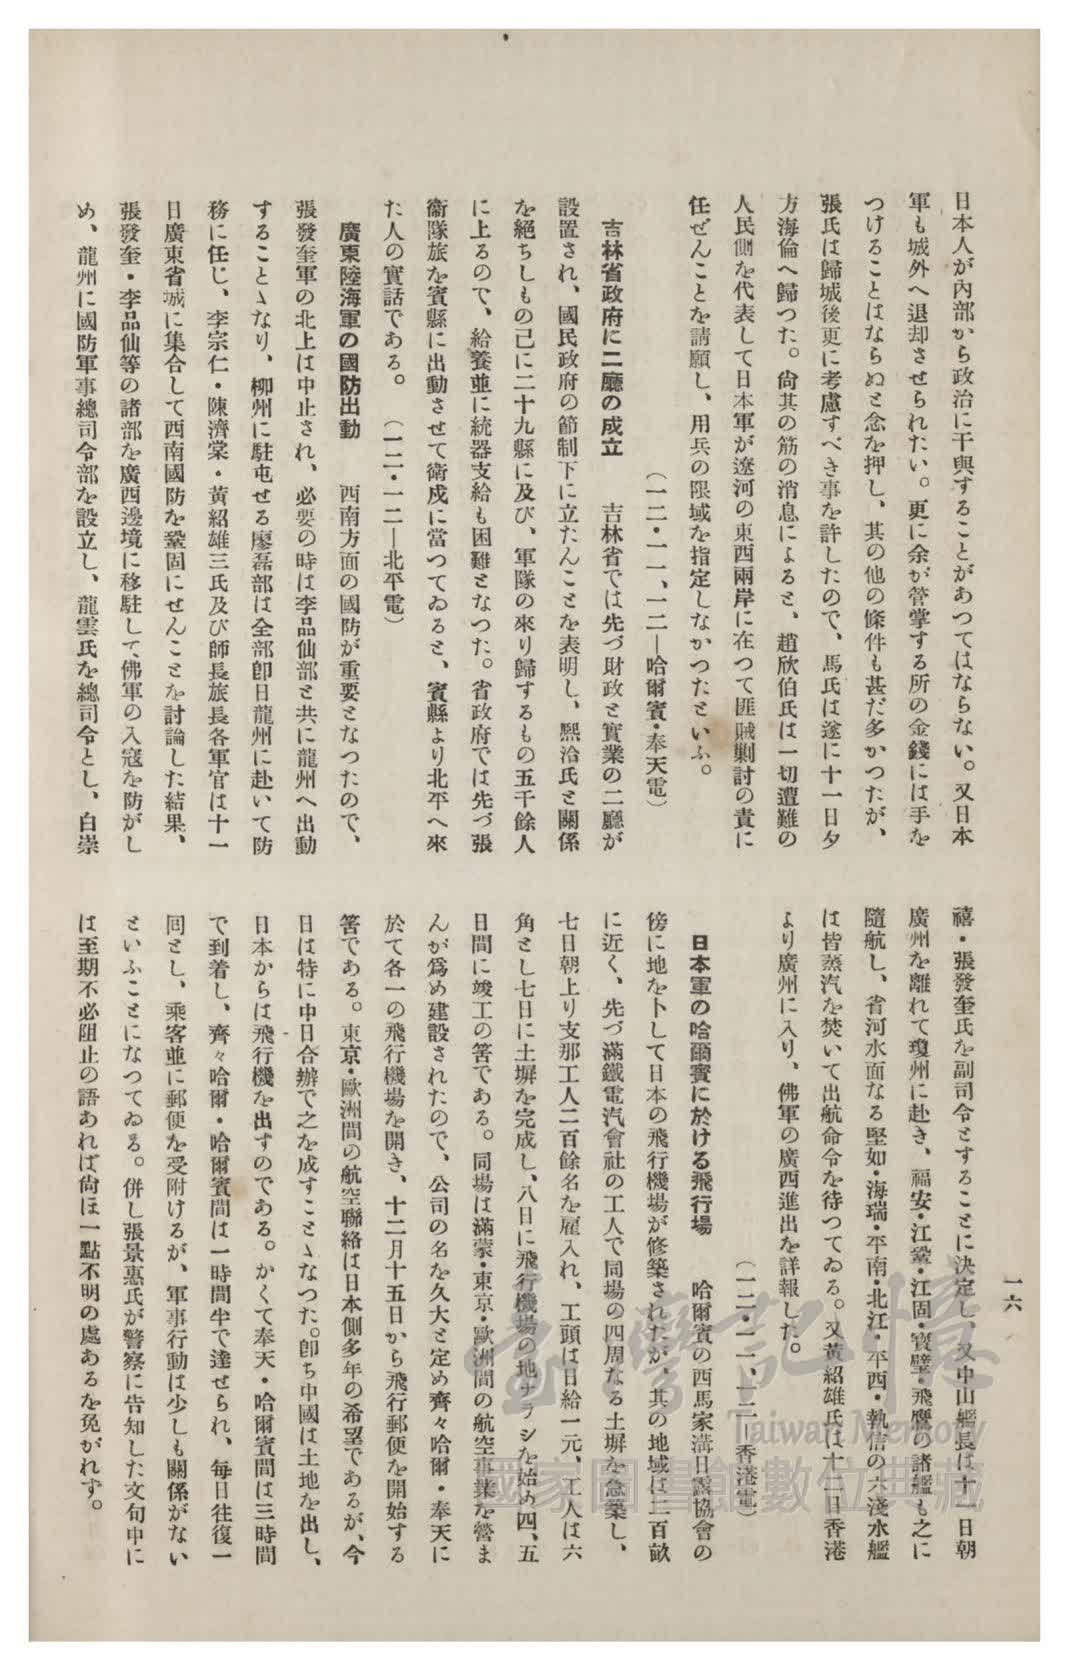 日本人が內部から政治に干與することがあつてはならない。又日本
軍も城外へ退却させられたい。更に余が管掌する所の金錢には手を
つけることはならぬと念を押し、其の他の條件も甚だ多かつたが、
張氏は歸城後更に考慮すべき事を許したので、馬氏は遂に十一日夕
方海倫へ歸つた。尙其の筋の消息によると、趙欣伯氏は一切遭難の
人民側を代表して日本軍が遼河の東西兩岸に在つて匪賊剿討の責に
任ぜんことを請願し、用兵の限域を指定しなかつたといふ。
（一二・一一、一二―哈爾賓・奉天電）
吉林省政府に二廳の成立　吉林省では先づ財政と實業の二廳が
設置され、國民政府の節制下に立たんことを表明し、熙洽氏と關係
を絕ちしもの已に二十九縣に及び、軍隊の來り歸するもの五千餘人
に上るので、給養並に統器支給も困難となつた。省政府では先づ張
衞隊旅を賓縣に出動させて衛戍に當つてゐると、賓縣より北平へ來
た人の實話である。（一二・一二―北平電）
廣東陸海軍の國防出動　西南方面の國防が重要となつたので、
張發奎軍の北上は中止され、必要の時は李品仙部と共に龍州へ出動
することゝなり、柳州に駐屯せる廖磊部は全部卽日龍州に赴いて防
務に任じ、李宗仁・陳濟棠・黃紹雄三氏及び師長旅長各軍官は十一
日廣東省城に集合して西南國防を鞏固にせんことを討論した結果、
張發奎・李品仙等の諸部を廣西邊境に移駐して、佛軍の入寇を防がし
め、龍州に國防軍事總司令部を設立し、龍雲氏を總司令とし、白崇
禧・張發奎氏を副司令とすることに決定し、又中山艦長は十一日朝
廣州を離れて瓊州に赴き、福安・江鞏・江固・寶璧・飛鷹の諸艦も之に
隨航し、省河水面なる堅如・海瑞・平南・北江・平西・執信の六淺水艦
は皆蒸汽を焚いて出航命令を待つてゐる。又黃紹雄氏は十二日香港
より廣州に入り、佛軍の廣西進出を詳報した。
（一二・一一、一二―香港電）
日本軍の哈爾賓に於ける飛行場　哈爾賓の西馬家溝日露協會の
傍に地を卜して日本の飛行機場が修築されたが、其の地域は三百畝
に近く、先づ滿鐵電汽會社の工人で同場の四周なる土塀を急築し、
七日朝上り支那工人二百餘名を雇入れ、工頭は日給一元、工人は六
角とし七日に土塀を完成し、八日に飛行機場の地ナラシを始め四、五
日間に竣工の筈である。同場は滿蒙・東京・歐洲間の航空事業を營ま
んが爲め建設されたので、公司の名を久大と定め齊々哈爾・奉天に
於て各一の飛行機場を開き、十二月十五日から飛行郵便を開始する
筈である。東京・歐洲間の航空聯絡は日本側多年の希望であるが、今
日は特に中日合辦で之を成すことゝなつた。卽ち中國は土地を出し、
日本からは飛行機を出すのである。かくて奉天・哈爾賓間は三時間
で到着し、齊々哈爾・哈爾賓間は一時間半で達せられ、每日往復一
囘とし、乘客並に郵便を受附けるが、軍事行動は少しも關係がない
といふことになつてゐる。倂し張景惠氏が警察に吿知した文句中に
は至期不必阻止の語あれば尙ほ一點不明の處あるを免がれず。
一六
臺灣記憶
Taiwan Memory
國家圖書館數位典藏